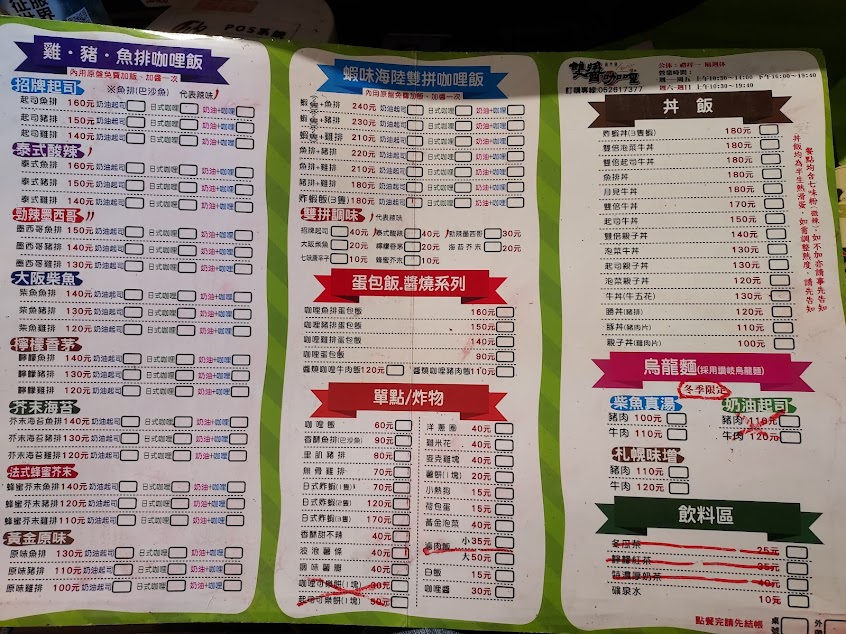 POS系統
雞．豬．魚排咖哩飯
內用原盤免費加飯、加醬一次
招牌起司 ※魚排(巴沙魚) 代表辣味
起司魚排 160元 奶油起司 日式咖哩 奶油+咖哩
起司豬排 150元 奶油起司 日式咖哩 奶油+咖哩
起司雞排 140元 奶油起司 日式咖哩 奶油+咖哩
泰式酸辣
泰式魚排 160元 奶油起司 日式咖哩 奶油+咖哩
泰式豬排 150元 奶油起司 日式咖哩 奶油+咖哩
泰式雞排 140元 奶油起司 日式咖哩 奶油+咖哩
勁辣墨西哥
墨西哥魚排 150元 奶油起司 日式咖哩 奶油+咖哩
墨西哥豬排 140元 奶油起司 日式咖哩 奶油+咖哩
墨西哥雞排 130元 奶油起司 日式咖哩 奶油+咖哩
大阪柴魚
柴魚魚排 140元 奶油起司 日式咖哩 奶油+咖哩
柴魚豬排 130元 奶油起司 日式咖哩 奶油+咖哩
柴魚雞排 120元 奶油起司 日式咖哩 奶油+咖哩
檸檬香茅
檸檬魚排 140元 奶油起司 日式咖哩 奶油+咖哩
檸檬豬排 130元 奶油起司 日式咖哩 奶油+咖哩
檸檬雞排 120元 奶油起司 日式咖哩 奶油+咖哩
芥末海苔
芥末海苔魚排 140元 奶油起司 日式咖哩 奶油+咖哩
芥末海苔豬排 130元 奶油起司 日式咖哩 奶油+咖哩
芥末海苔雞排 120元 奶油起司 日式咖哩 奶油+咖哩
法式蜂蜜芥末
蜂蜜芥末魚排 140元 奶油起司 日式咖哩 奶油+咖哩
蜂蜜芥末豬排 120元 奶油起司 日式咖哩 奶油+咖哩
蜂蜜芥末雞排 110元 奶油起司 日式咖哩 奶油+咖哩
黃金原味
原味魚排 130元 奶油起司 日式咖哩 奶油+咖哩
原味豬排 110元 奶油起司 日式咖哩 奶油+咖哩
原味雞排 100元 奶油起司 日式咖哩 奶油+咖哩
蝦味海陸雙拼咖哩飯
內用原盤免費加飯、加醬一次
蝦+魚排 240元 奶油起司 日式咖哩 奶油+咖哩
蝦+豬排 230元 奶油起司 日式咖哩 奶油+咖哩
蝦+雞排 210元 奶油起司 日式咖哩 奶油+咖哩
魚排+豬排 220元 奶油起司 日式咖哩 奶油+咖哩
魚排+雞排 210元 奶油起司 日式咖哩 奶油+咖哩
豬排+雞排 180元 奶油起司 日式咖哩 奶油+咖哩
炸蝦飯(3隻) 180元 奶油起司 日式咖哩 奶油+咖哩
雙拼調味 代表辣味
招牌起司 40元 泰式酸辣 40元 勁辣墨西哥 30元
大阪柴魚 20元 檸檬香茅 30元 海苔芥末 20元
七味唐辛子 10元 蜂蜜芥末 10元
蛋包飯.醬燒系列
咖哩魚排蛋包飯 160元
咖哩豬排蛋包飯 150元
咖哩雞排蛋包飯 140元
咖哩蛋包飯 90元
醬燒咖哩牛肉飯 120元 醬燒咖哩豬肉飯 110元
單點/炸物
咖哩飯 60元
香酥魚排(巴沙魚) 90元
里肌豬排 80元
無骨雞排 70元
日式炸蝦(1隻) 70元
日式炸蝦(2隻) 120元
日式炸蝦(3隻) 170元
香酥甜不辣 40元
波浪薯條 40元
調味薯團 40元
咖哩可樂餅(1塊) 30元
起司可樂餅(1塊) 30元
洋蔥圈 40元
雞米花 40元
麥克雞塊 40元
薯餅(1塊) 20元
小熱狗 15元
荷包蛋 15元
黃金泡菜 40元
滷肉飯 小35元
大50元
白飯 15元
咖哩醬 30元
雙醬咖哩
訂購專線:052617377
營業時間：
丼飯
炸蝦丼(3隻蝦) 180元
雙倍泡菜牛丼 180元
雙倍起司牛丼 180元
魚排丼 180元
月見牛丼 180元
雙倍牛丼 170元
起司牛丼 150元
雙倍親子丼 140元
泡菜牛丼 130元
起司親子丼 130元
泡菜親子丼 120元
牛丼(牛五花) 130元
勝丼(豬排) 120元
豚丼(豬肉片) 110元
親子丼(雞肉片) 100元
餐點均含七味粉(微辣)，如不加亦請事先告知
丼飯均為半生熟滑蛋，如需調整熟度，請先告知
烏龍麵(採用讚岐烏龍麵)
冬季限定
柴魚真湯
豬肉 100元
牛肉 110元
奶油起司
豬肉 110元
牛肉 120元
札幌味增
豬肉 110元
牛肉 120元
飲料區
冬瓜茶 25元
檸檬紅茶 35元
特濃厚奶茶 40元
礦泉水 10元
點餐完請先結帳